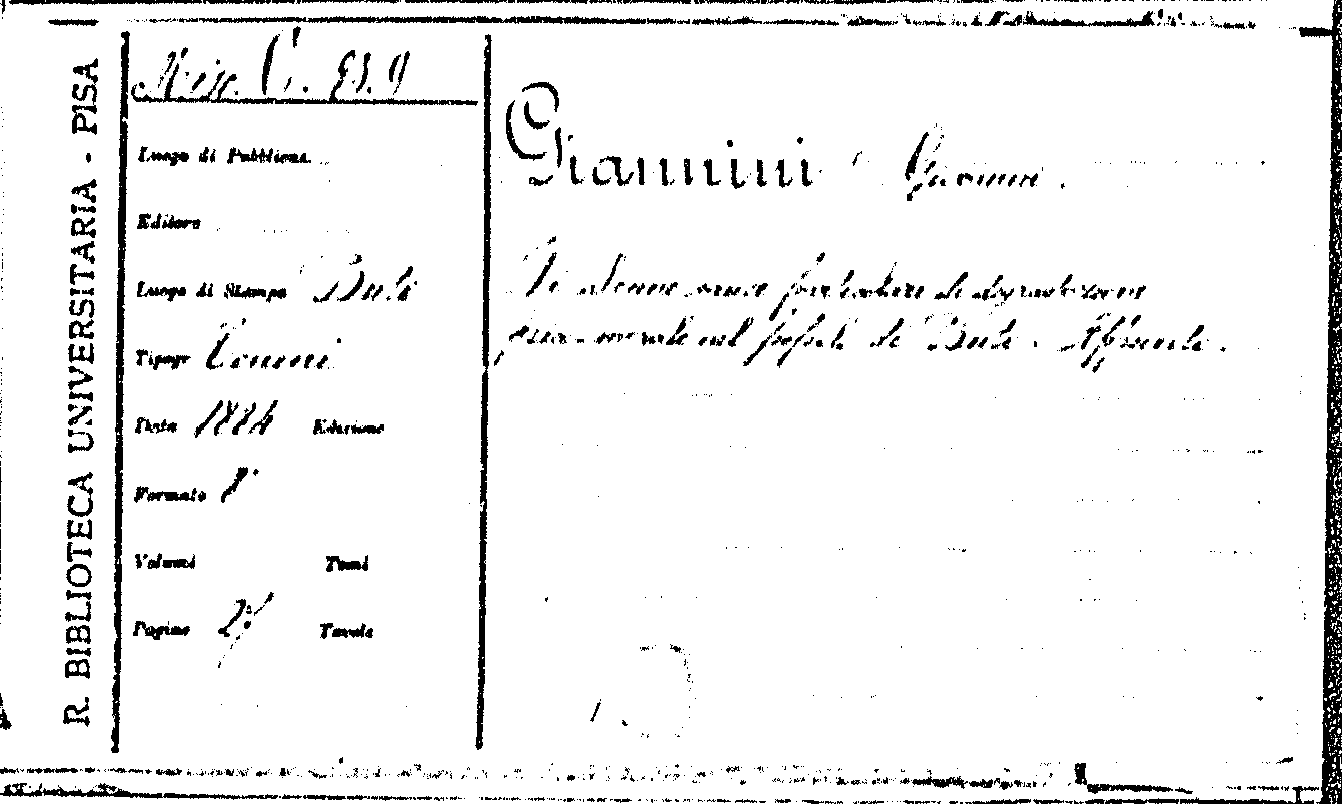 R. BIBLIOTECA UNIVERSITARIA - PISA
Misc. C.
Luogo di Pubblicaz.
Editore
Luogo di Stampa Buti
Tipogr
Data 1884 Edizione
Formato 8°
Volumi Tomi
Pagine Tavole
Giannini Giovanni.
Di alcune cause particolari di degradazione
fisico-morale nel popolo di Buti. Appunti.